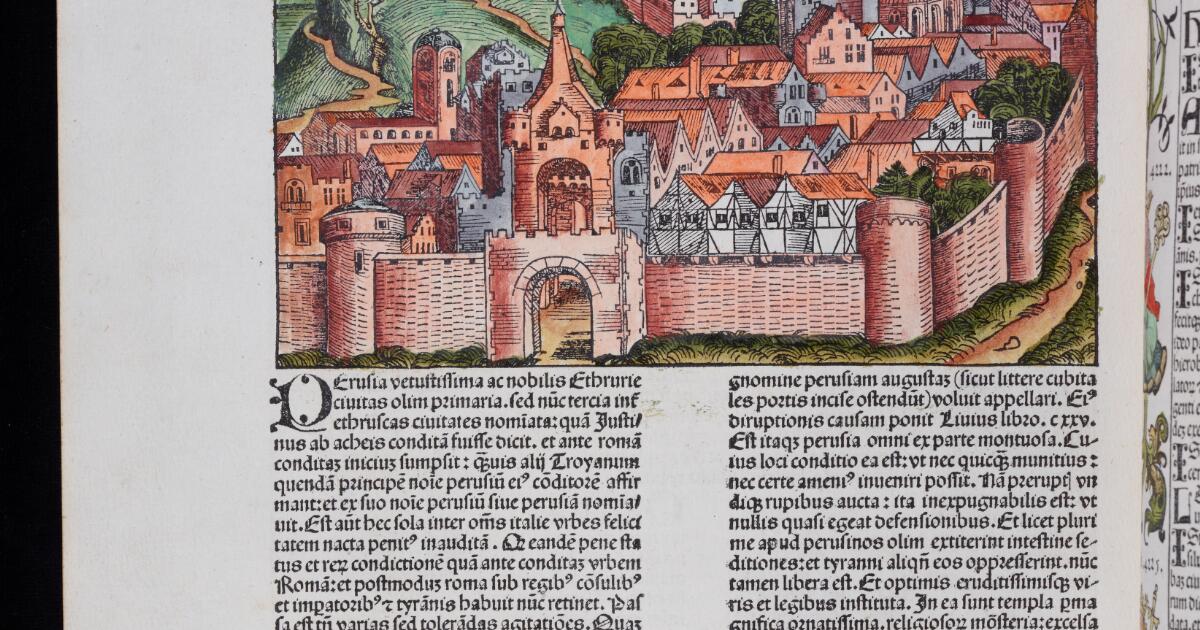 PErusia vetustissima ac nobilis Ethrurie
civitas olim primaria. sed nūc tercia int̄
ethruscas civitates nomīata: quā Justi
nus ab acheis conditā fuisse dicit. et ante romā
conditaʒ inicium sumpsit: q̄uis alij Troyanum
quendā principē noīe perusiū eiꝰ cōditorē affir
mant: et ex suo noīe perusiū siue perusiā nomīa/
uit. Est aūt hec sola inter om̄s italie vrbes felici
tatem nacta penitꝰ inauditā. Qꝛ eandē pene sta
tus et reꝝ condictionē quā ante conditaʒ vrbem
Romā: et postmoduʒ roma sub regibꝰ cōsulibꝰ
et imꝑatoribꝰ ⁊ tyrānis habuit nūc retinet. Pas
sa est tn̄ varias sed tolerādas agitatiōes. Quaʒ
gnomine perusiam augustaʒ (sicut littere cubita
les portis incise ostendūt) voluit appellari. Eiꝰ
diruptionis causam ponit Liuius libro. c xxv.
Est itaqʒ perusia omni ex parte montuosa. Cu-
ius loci conditio ea est: vt nec quicq̄ munitius:
nec certe ameniꝰ inueniri possit. Nā prerupt[is] vn
diqʒ rupibus aucta: ita inexpugnabilis est: vt
nullis quasi egeat defensionibus. Et licet pluri
me apud perusinos olim extiterint intestine se-
ditiones: et tyranni aliqn̄ eos oppresserint. nūc
tamen libera est. Et optimis eruditissimisqʒ vi-
ris et legibus instituta. In ea sunt templa ꝑma
gnifica ornatissima. religiosoꝝ mōsteria: excelsa
4222.
4225.